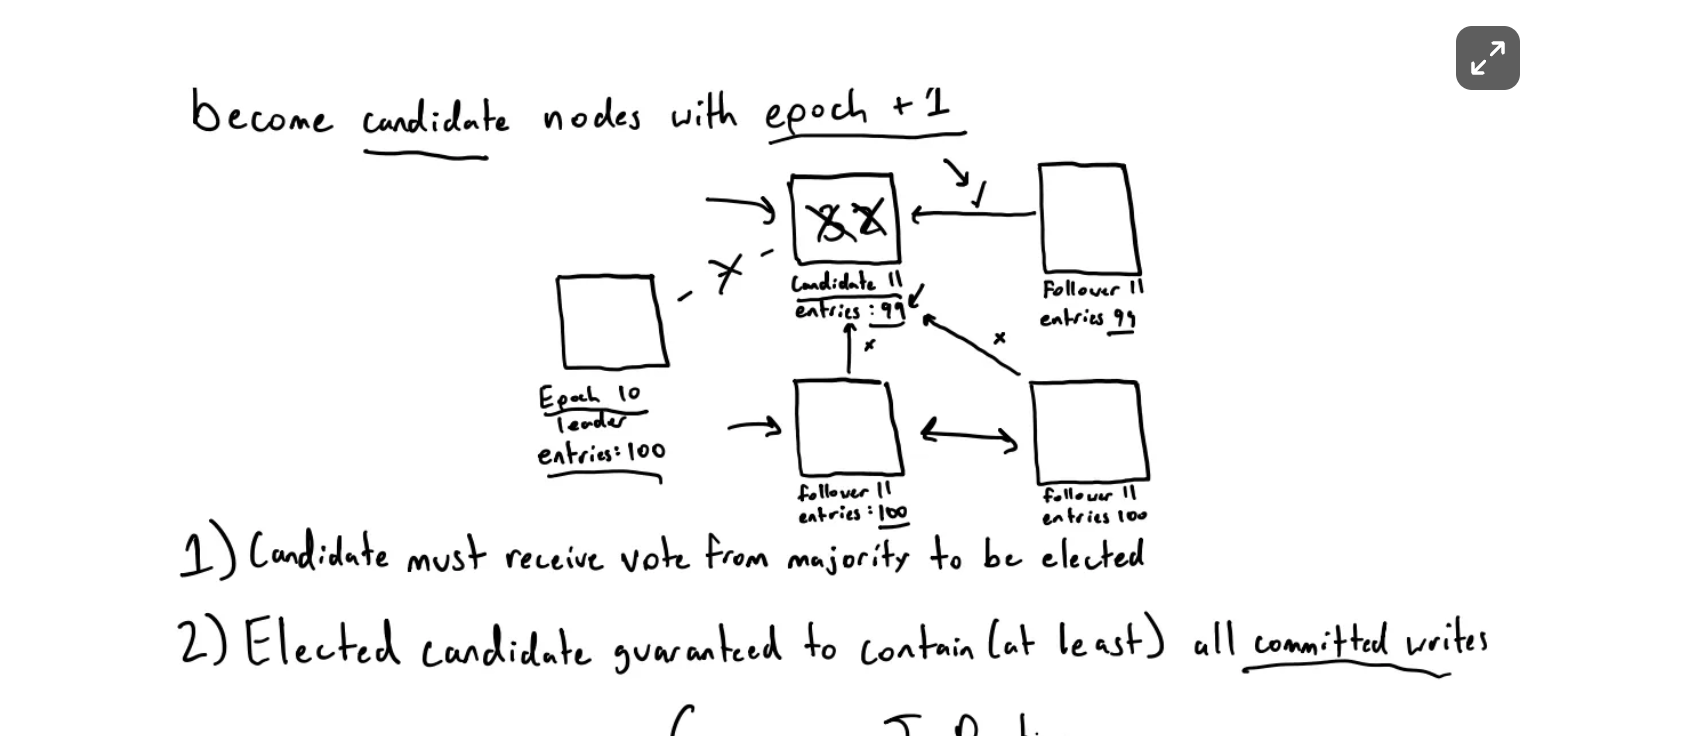 become candidate nodes with epoch + 1
Candidate 11
entries : 99
Follower 11
entries 99
Epoch 10
leader
entries: 100
follower 11
entries : 100
follower 11
entries 100
1) Candidate must receive vote from majority to be elected
2) Elected candidate guaranteed to contain (at least) all committed writes